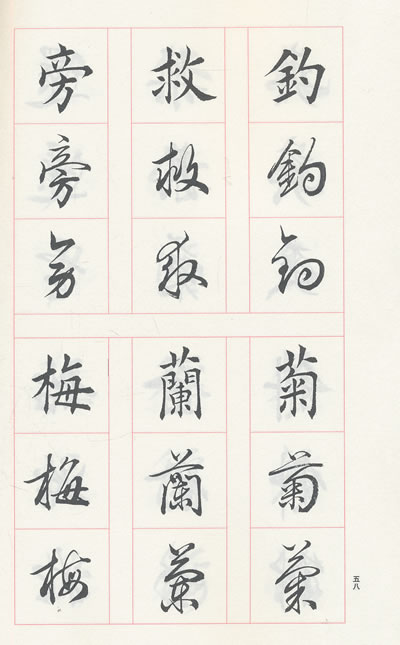 釣釣釣
救救救
旁旁旁
菊菊菊
蘭蘭蘭
梅梅梅
五八